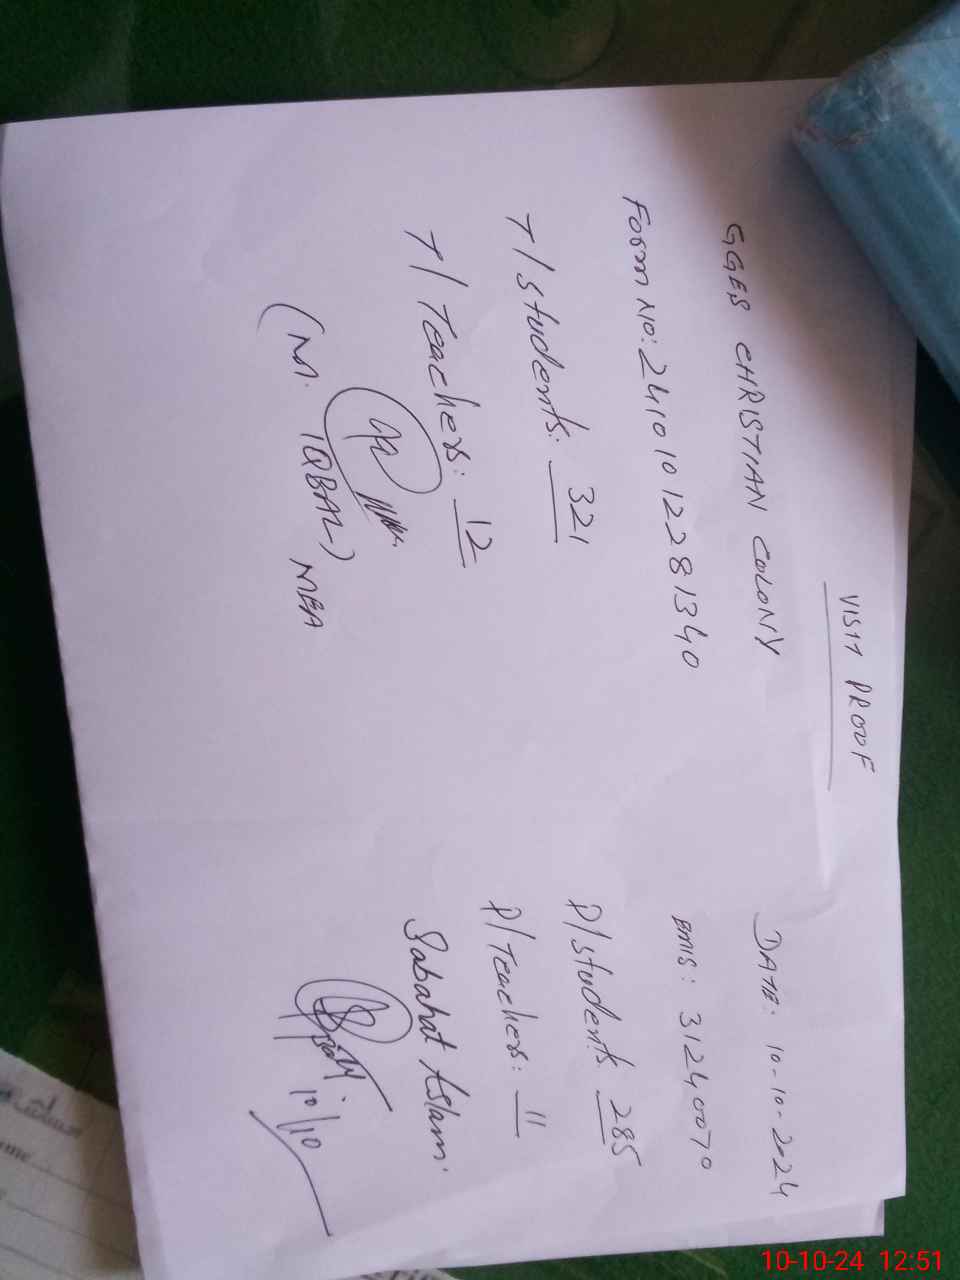 VISIT PROOF
GGES CHRISTIAN COLONY DATE: 10-10-2024
Form No: 24101012281340 EMIS: 31240070
T/Students: 321 P/Students 285
T/Teachers: 12 P/Teachers: 11
Sabahat Aslam.
(M. IQBAL) MEA
10/10
10-10-24 12:51